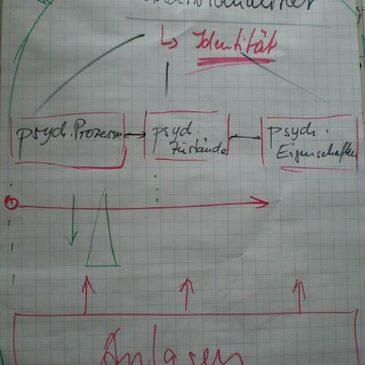 ↳ Identität
psych. Prozesse
psych.
Zustände
psych.
Eigenschaften
Anlagen